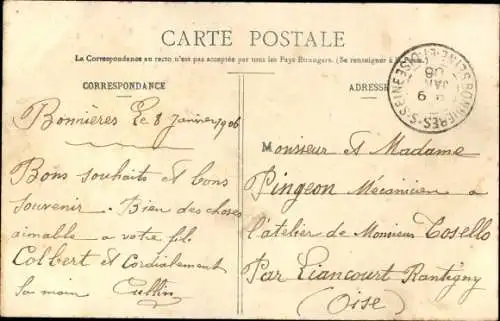 CARTE POSTALE
La Correspondance au recto n'est pas acceptée par tous les Pays Étrangers. (Se renseigner à
CORRESPONDANCE
ADRESSE
BONNIÈRES-S-SEINE
SEINE-ET-OISE
9
JAN
06
Bonnières le 8 Janvier 1906
Bons souhaits et bons
souvenir. Bien des choses
aimable a votre fils
Colbert et Cordialement
la main
Monsieur et Madame
Pingeon Mécanicien a
l'atelier de Monsieur Tosello
Par Liancourt Rantigny
(Oise)